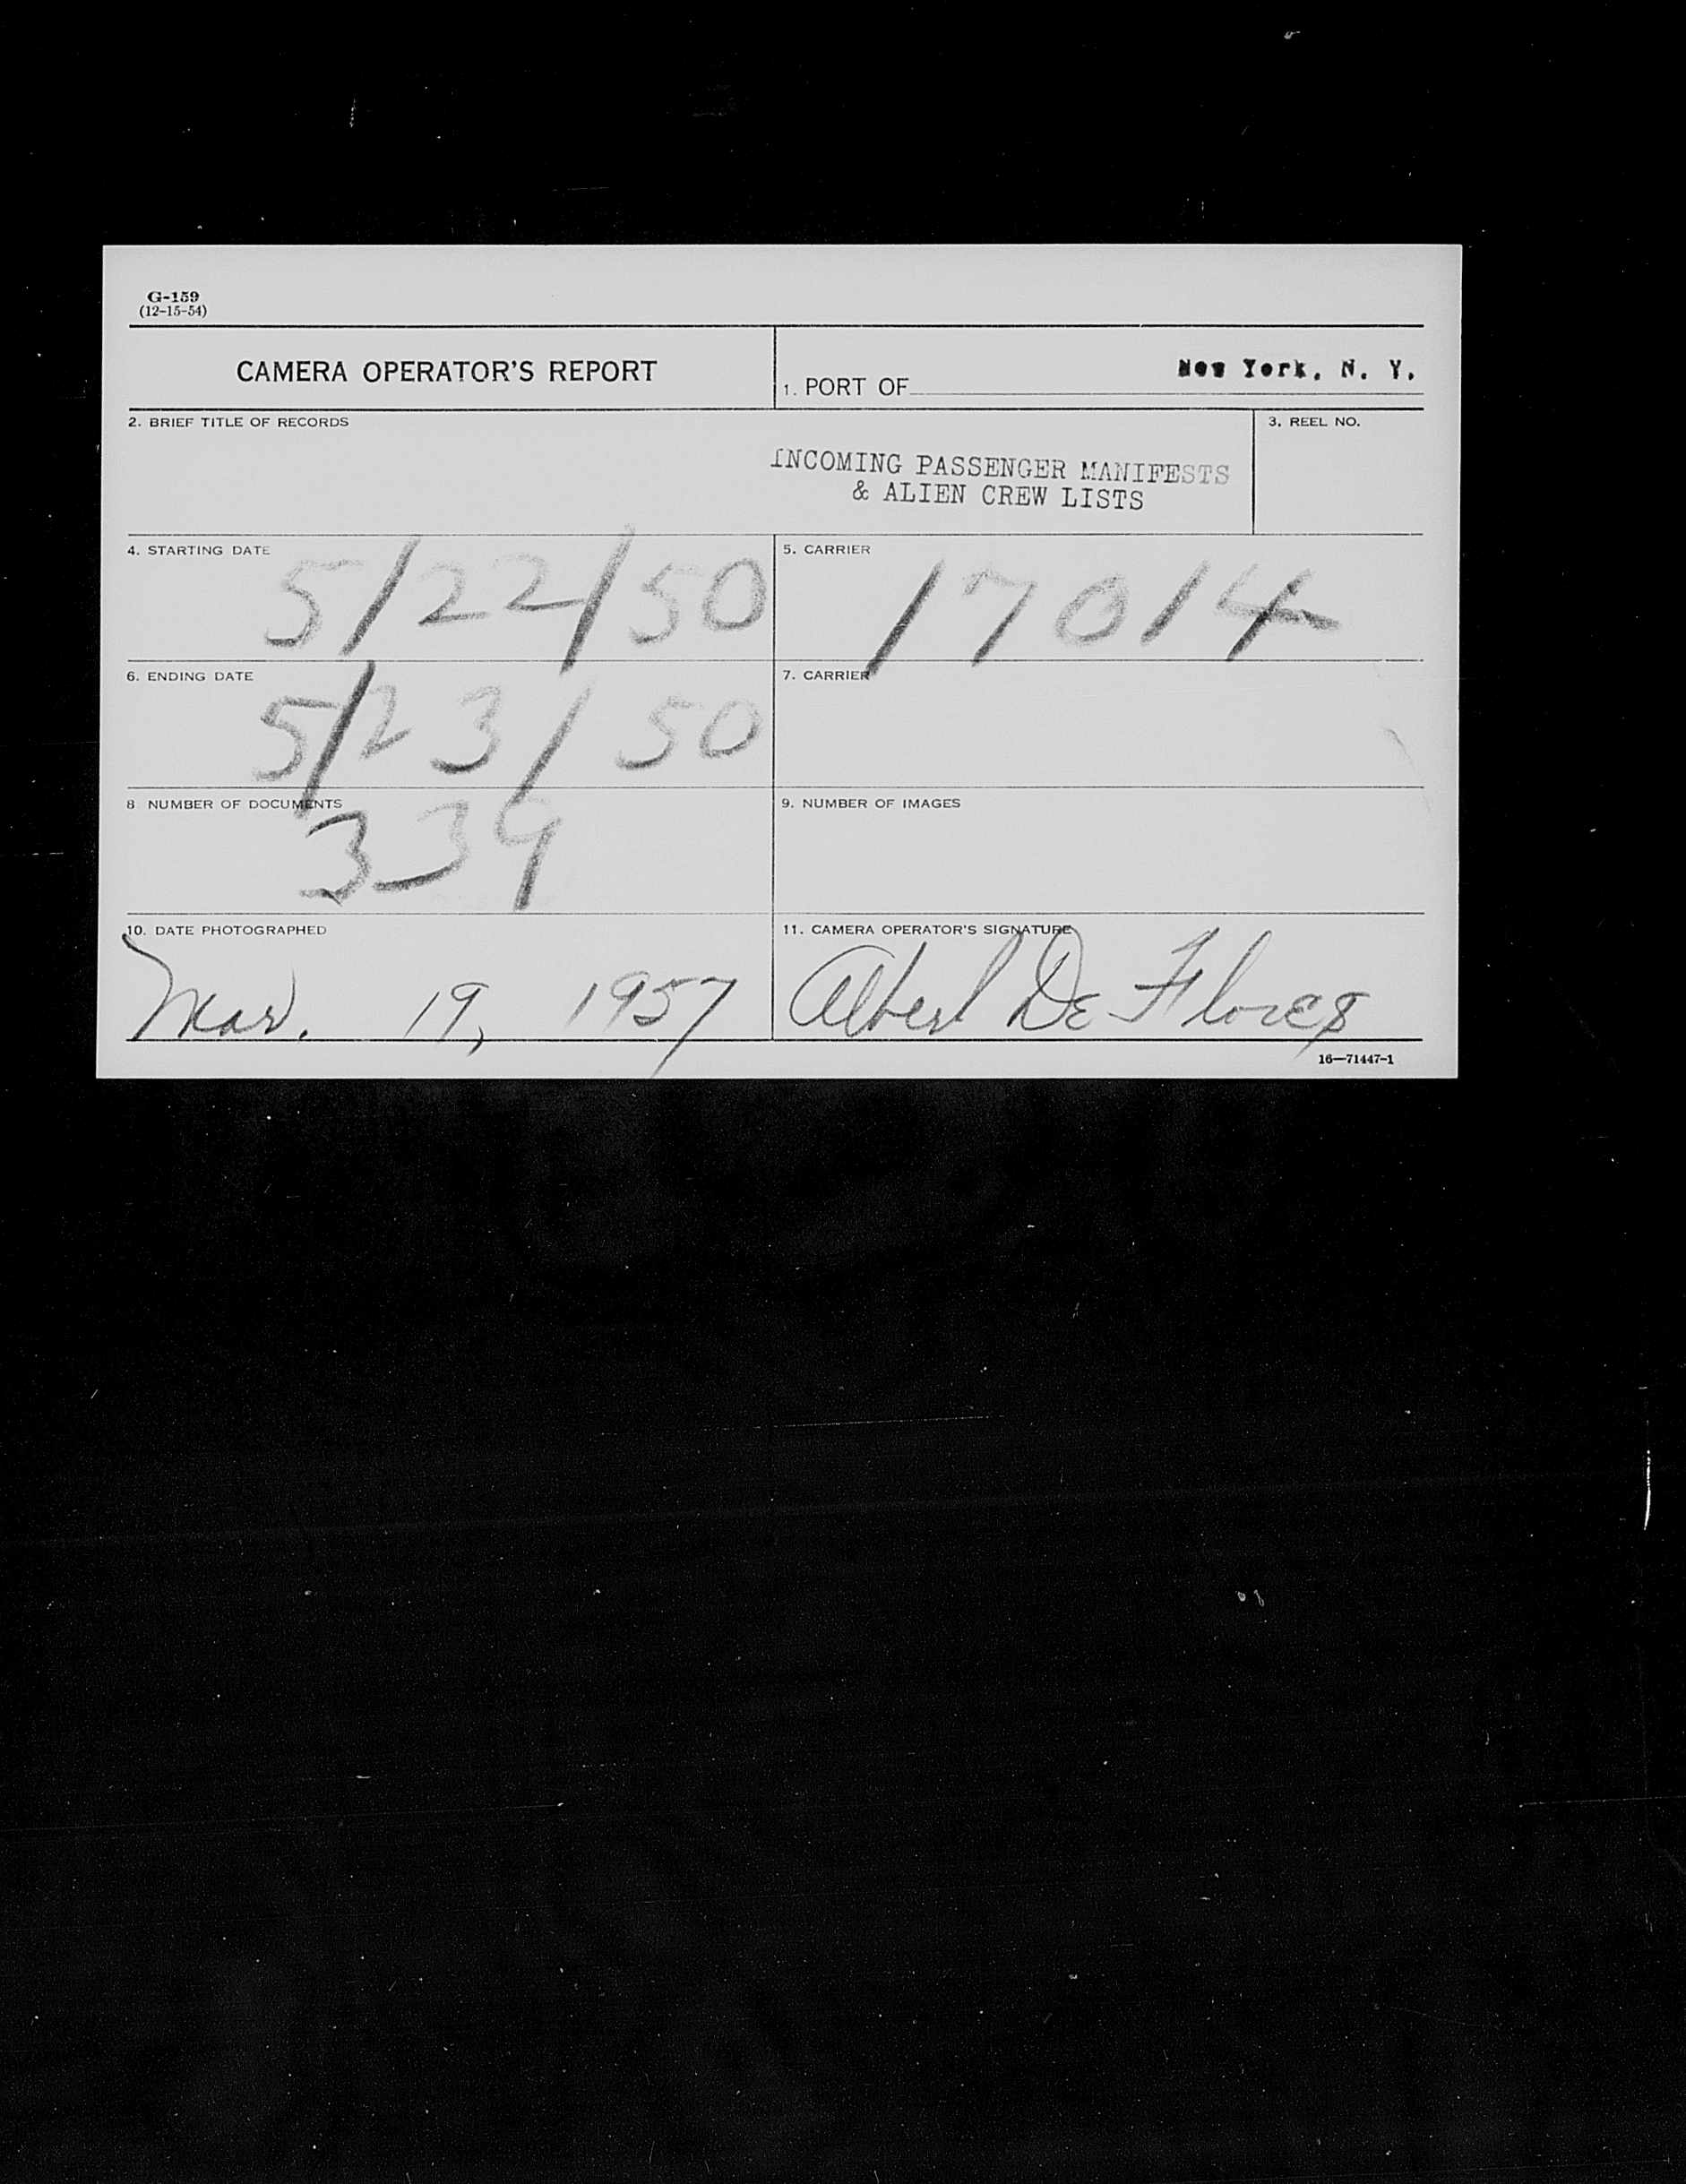 G-159
(12-15-54)
CAMERA OPERATOR'S REPORT
1. PORT OF New York, N. Y.
2. BRIEF TITLE OF RECORDS
INCOMING PASSENGER MANIFESTS
& ALIEN CREW LISTS
3. REEL NO.
4. STARTING DATE
5/22/50
5. CARRIER
17014
6. ENDING DATE
5/23/50
7. CARRIER
8 NUMBER OF DOCUMENTS
339
9. NUMBER OF IMAGES
10. DATE PHOTOGRAPHED
Mar. 19, 1957
11. CAMERA OPERATOR'S SIGNATURE
Albert De Flores
16—71447-1